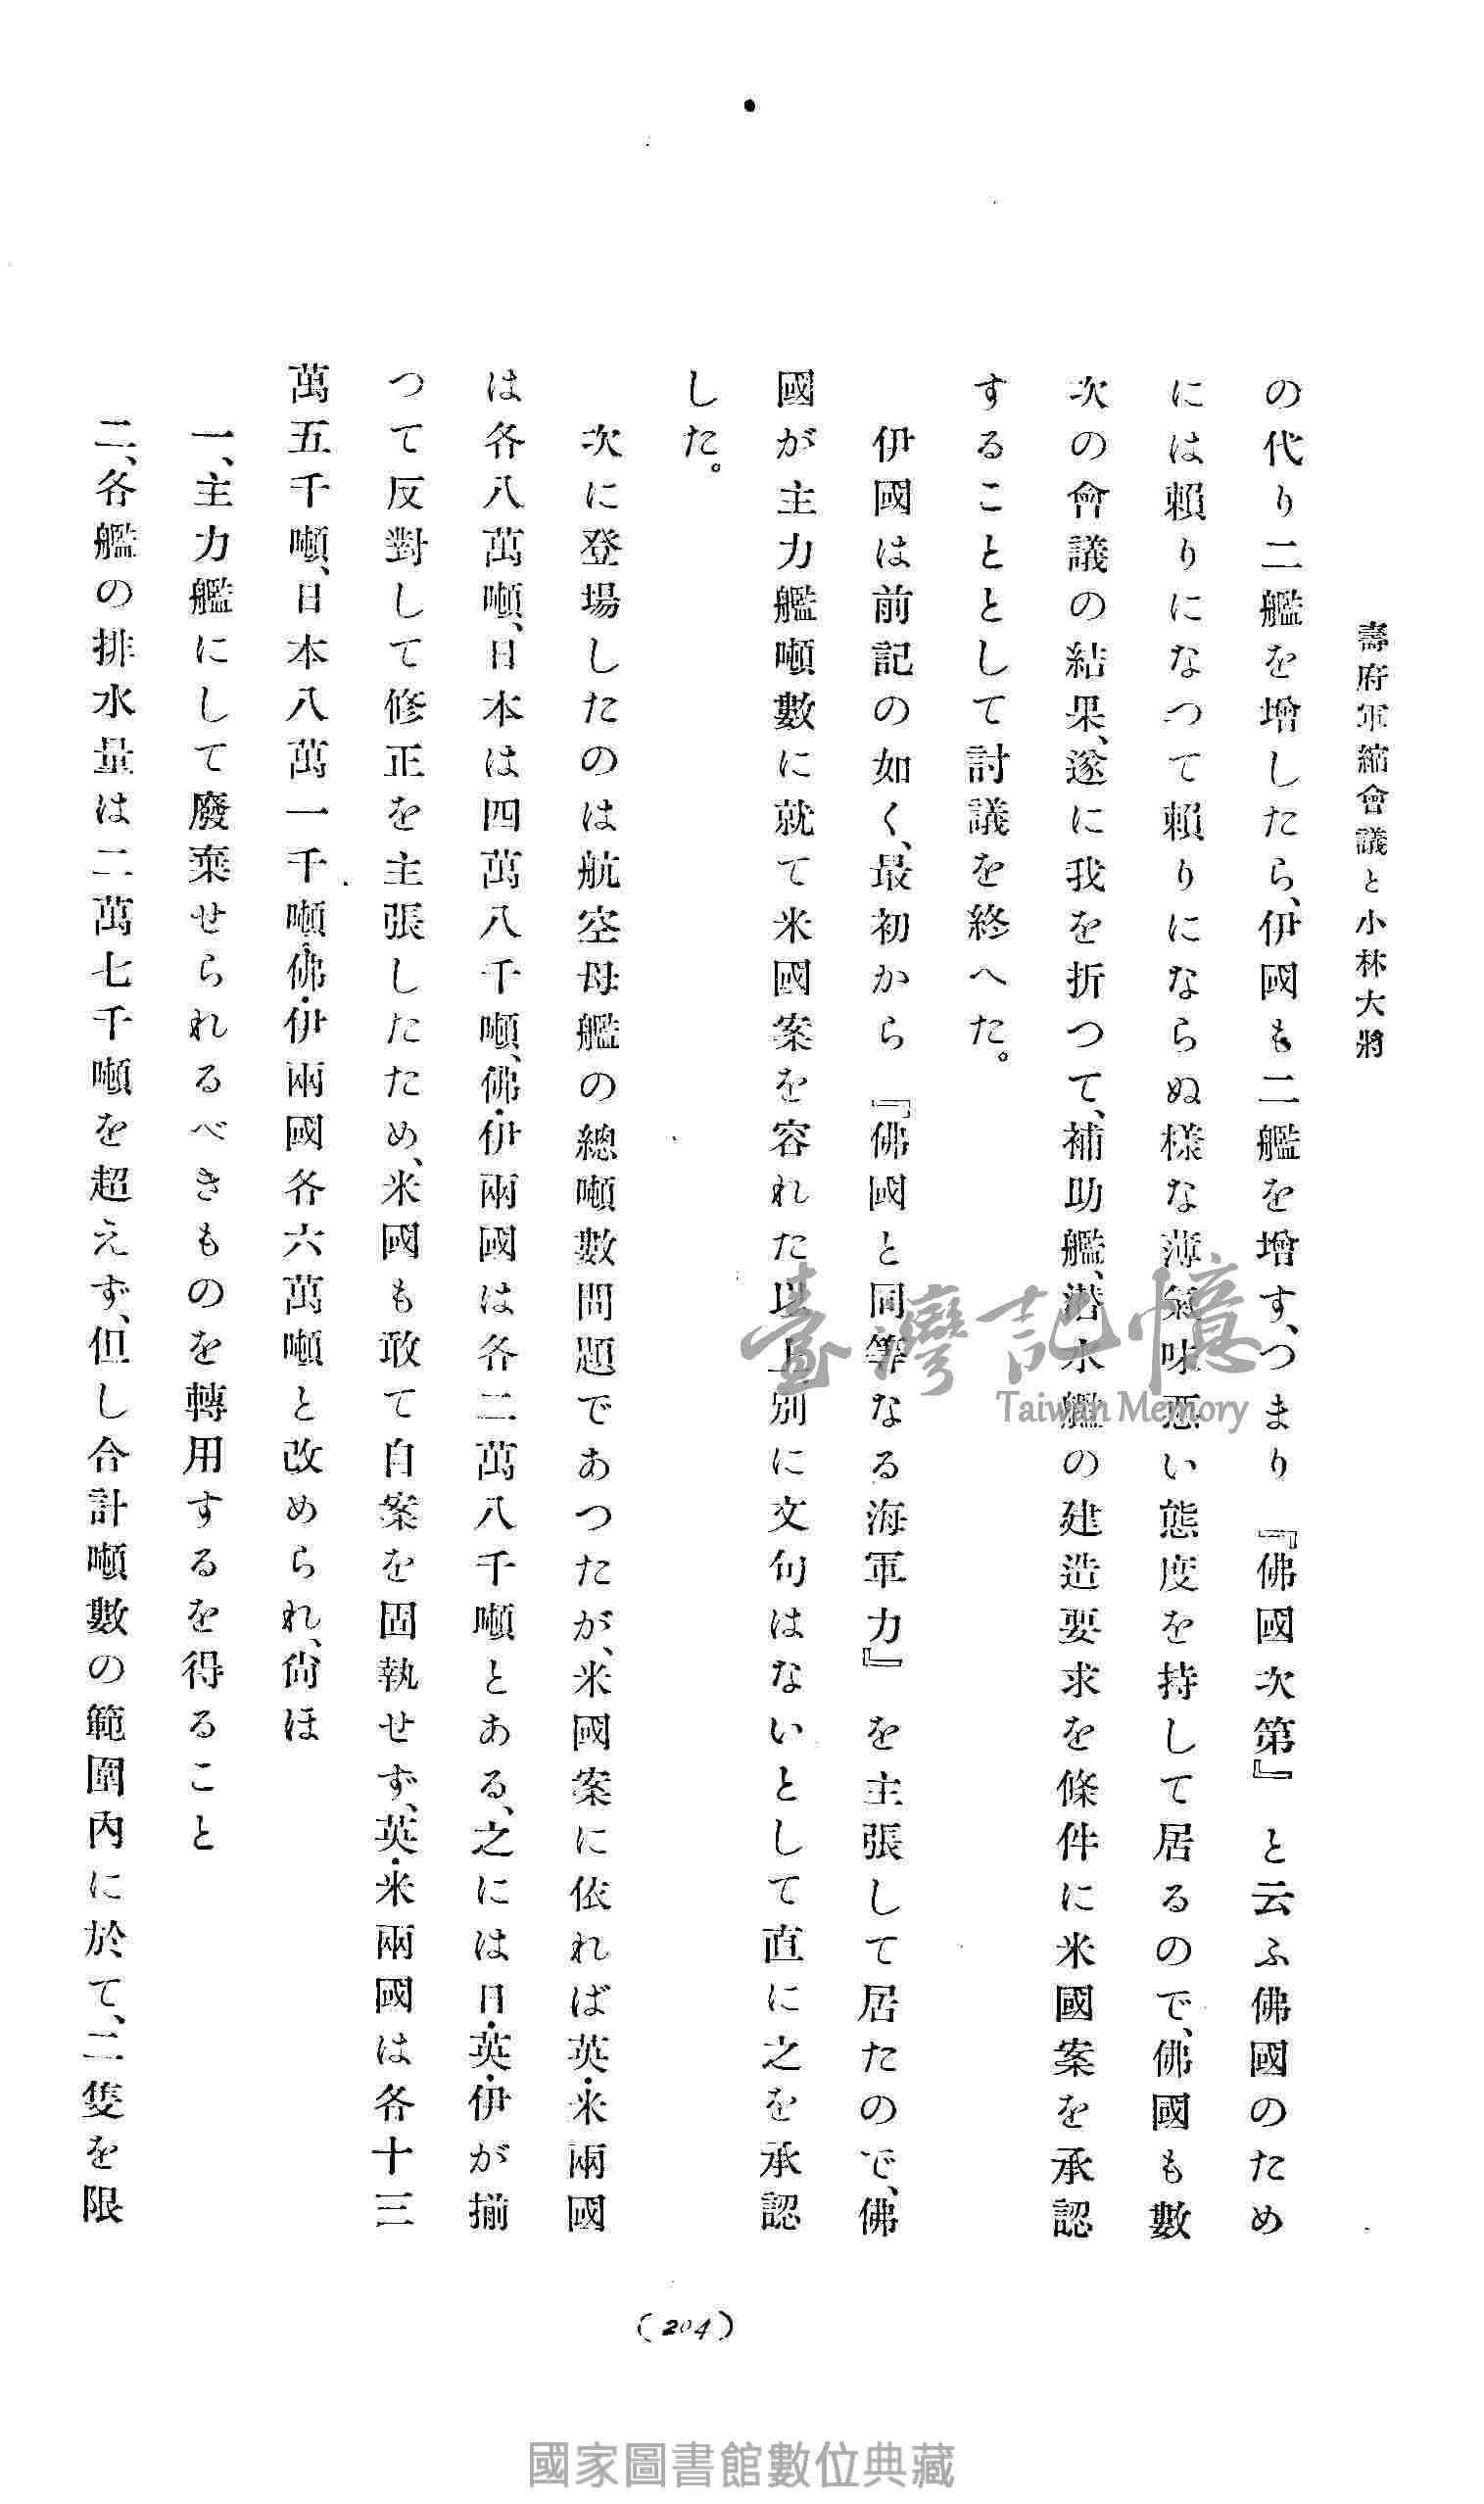 壽府軍縮會議と小林大將
の代り二艦を増したら、伊國も二艦を増す、つまり『佛國次第』と云ふ佛國のため
には賴りになつて賴りにならぬ様な薄氣味悪い態度を持して居るので、佛國も數
次の會議の結果、遂に我を折つて、補助艦、潜水艦の建造要求を條件に米國案を承認
することとして討議を終へた。
伊國は前記の如く、最初から『佛國と同等なる海軍力』を主張して居たので、佛
國が主力艦噸數に就て米國案を容れた以上、別に文句はないとして直に之を承認
した。
次に登場したのは航空母艦の總噸數問題であつたが、米國案に依れば英・米兩國
は各八萬噸、日本は四萬八千噸、佛・伊兩國は各二萬八千噸とある、之には日・英・伊が揃
つて反對して修正を主張したため、米國も敢て自案を固執せず、英・米兩國は各十三
萬五千噸、日本八萬一千噸、佛・伊兩國各六萬噸と改められ、尙ほ
一、主力艦にして廢棄せられるべきものを轉用するを得ること
二、各艦の排水量は二萬七千噸を超えず、但し合計噸數の範圍内に於て、二隻を限
(204)
臺灣記憶
Taiwan Memory
國家圖書館數位典藏